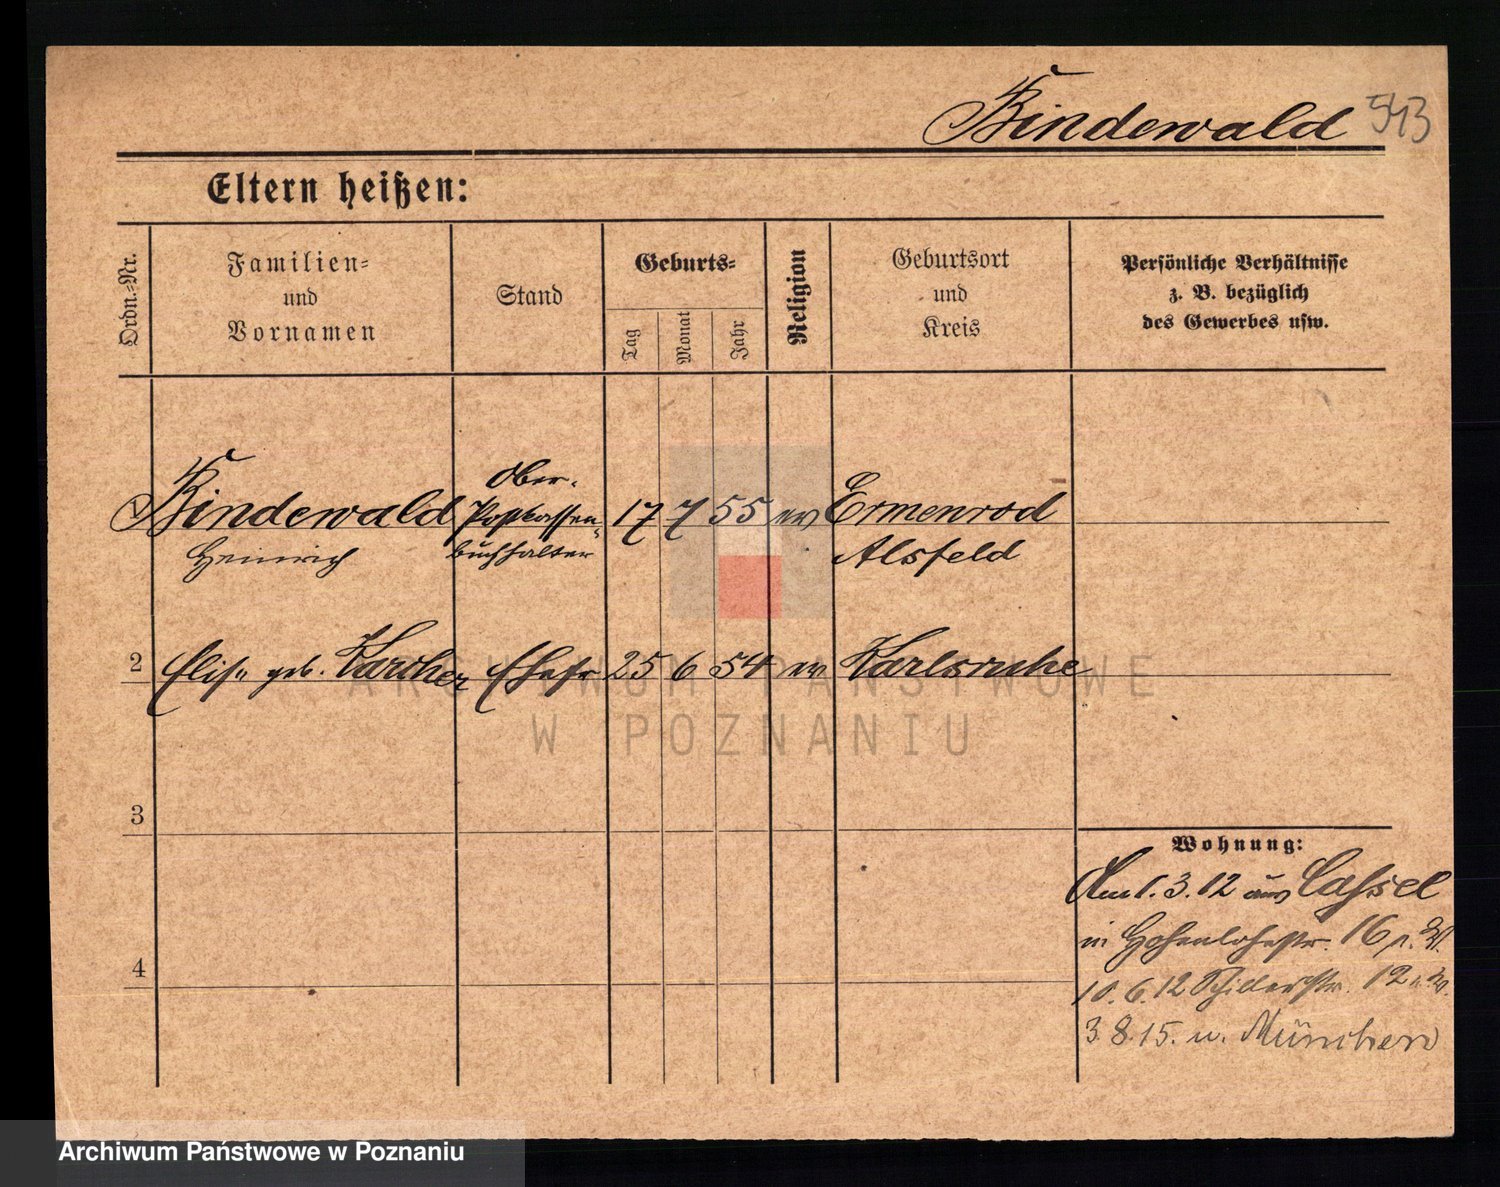 Bindewald 543
Eltern heißen:
Ordn.-Nr.
Familien-
und
Vornamen
Stand
Geburts-
Tag
Monat
Jahr
Religion
Geburtsort
und
Kreis
Persönliche Verhältnisse
z. B. bezüglich
des Gewerbes usw.
Bindewald
Heinrich
Ober-
Postkassen-
buchhalter
17 7 55 ev
Ermenrod
Alsfeld
2 Elise geb. Karcher Ehefr 25 6 54 ev Karlsruhe
3
4
Wohnung:
Am 1.3.12 aus Cassel
in Hohenlohestr. 16
10.6.12 Schillerstr. 12
3.8.15. n. München
ARCHIWUM PAŃSTWOWE
W POZNANIU
Archiwum Państwowe w Poznaniu